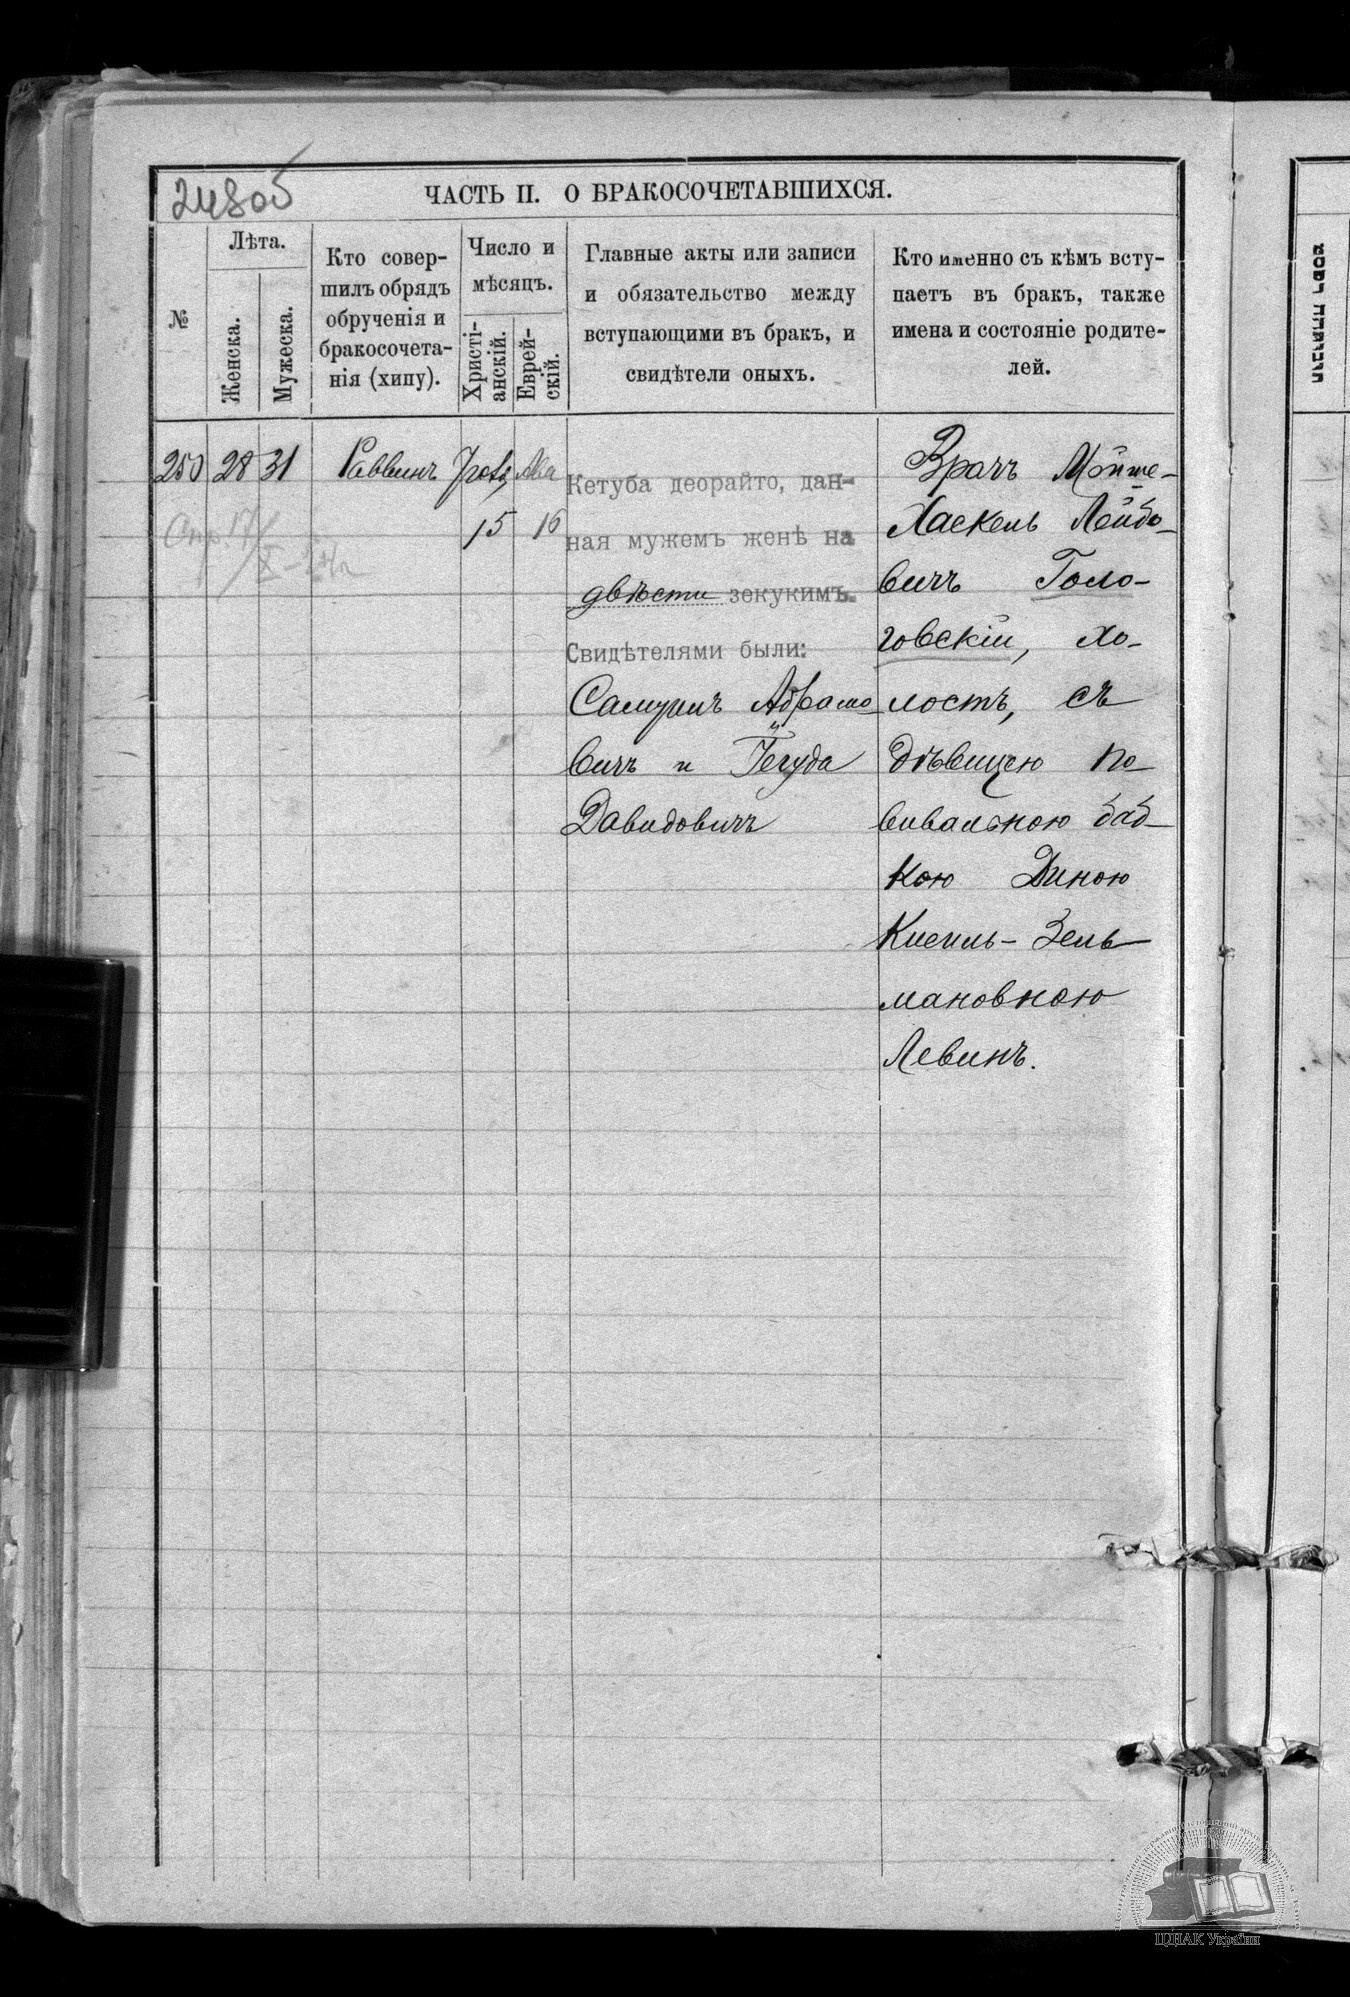 248об
ЧАСТЬ II. О БРАКОСОЧЕТАВШИХСЯ.
№
Лѣта.
Женска.
Мужеска.
Кто совер-
шилъ обрядъ
обрученія и
бракосочета-
нія (хипу).
Число и
мѣсяцъ.
Христі-
анскій.
Еврей-
скій.
Главные акты или записи
и обязательство между
вступающими въ бракъ, и
свидѣтели оныхъ.
Кто именно съ кѣмъ всту-
паетъ въ бракъ, также
имена и состояніе родите-
лей.
250
28
31
Раввинъ
15
16
Кетуба деорайто, дан-
ная мужемъ женѣ на
двѣсти зекукимъ.
Свидѣтелями были:
Самуилъ Абрамо
вичъ и Іегуда
Давидовичъ
Врачъ Мойше-
Хаскель Лейбо-
вичъ Голо-
говскій, хо-
лостъ, съ
дѣвицею по-
вивальною баб-
кою Диною
Кисиль-Зель
мановною
Левинъ.
ЦДІАК України